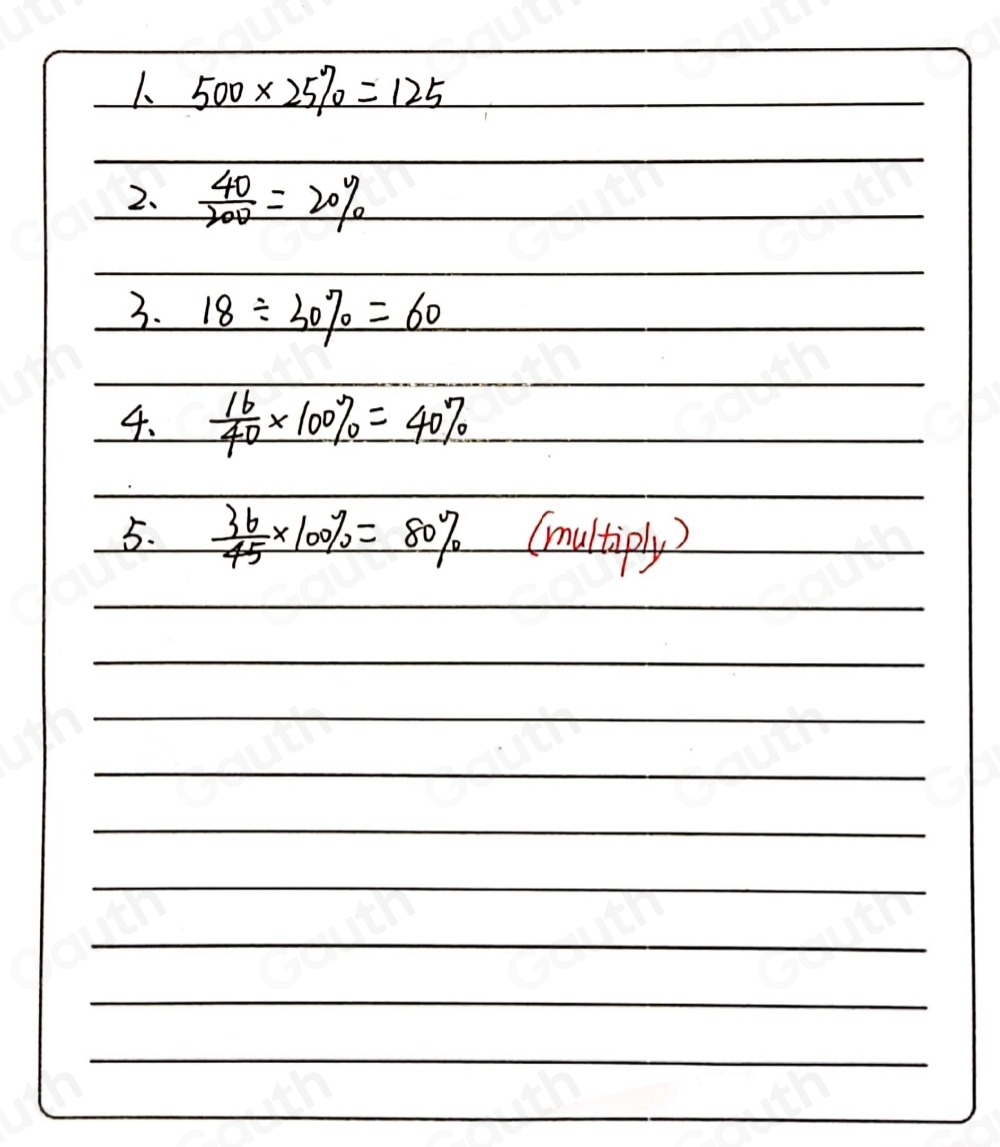 1、 500 × 25% = 125
2、 40/200 = 20%
3. 18 ÷ 30% = 60
4、 16/40 × 100% = 40%
5. 36/45 × 100% = 80% (multiply)
Gauth